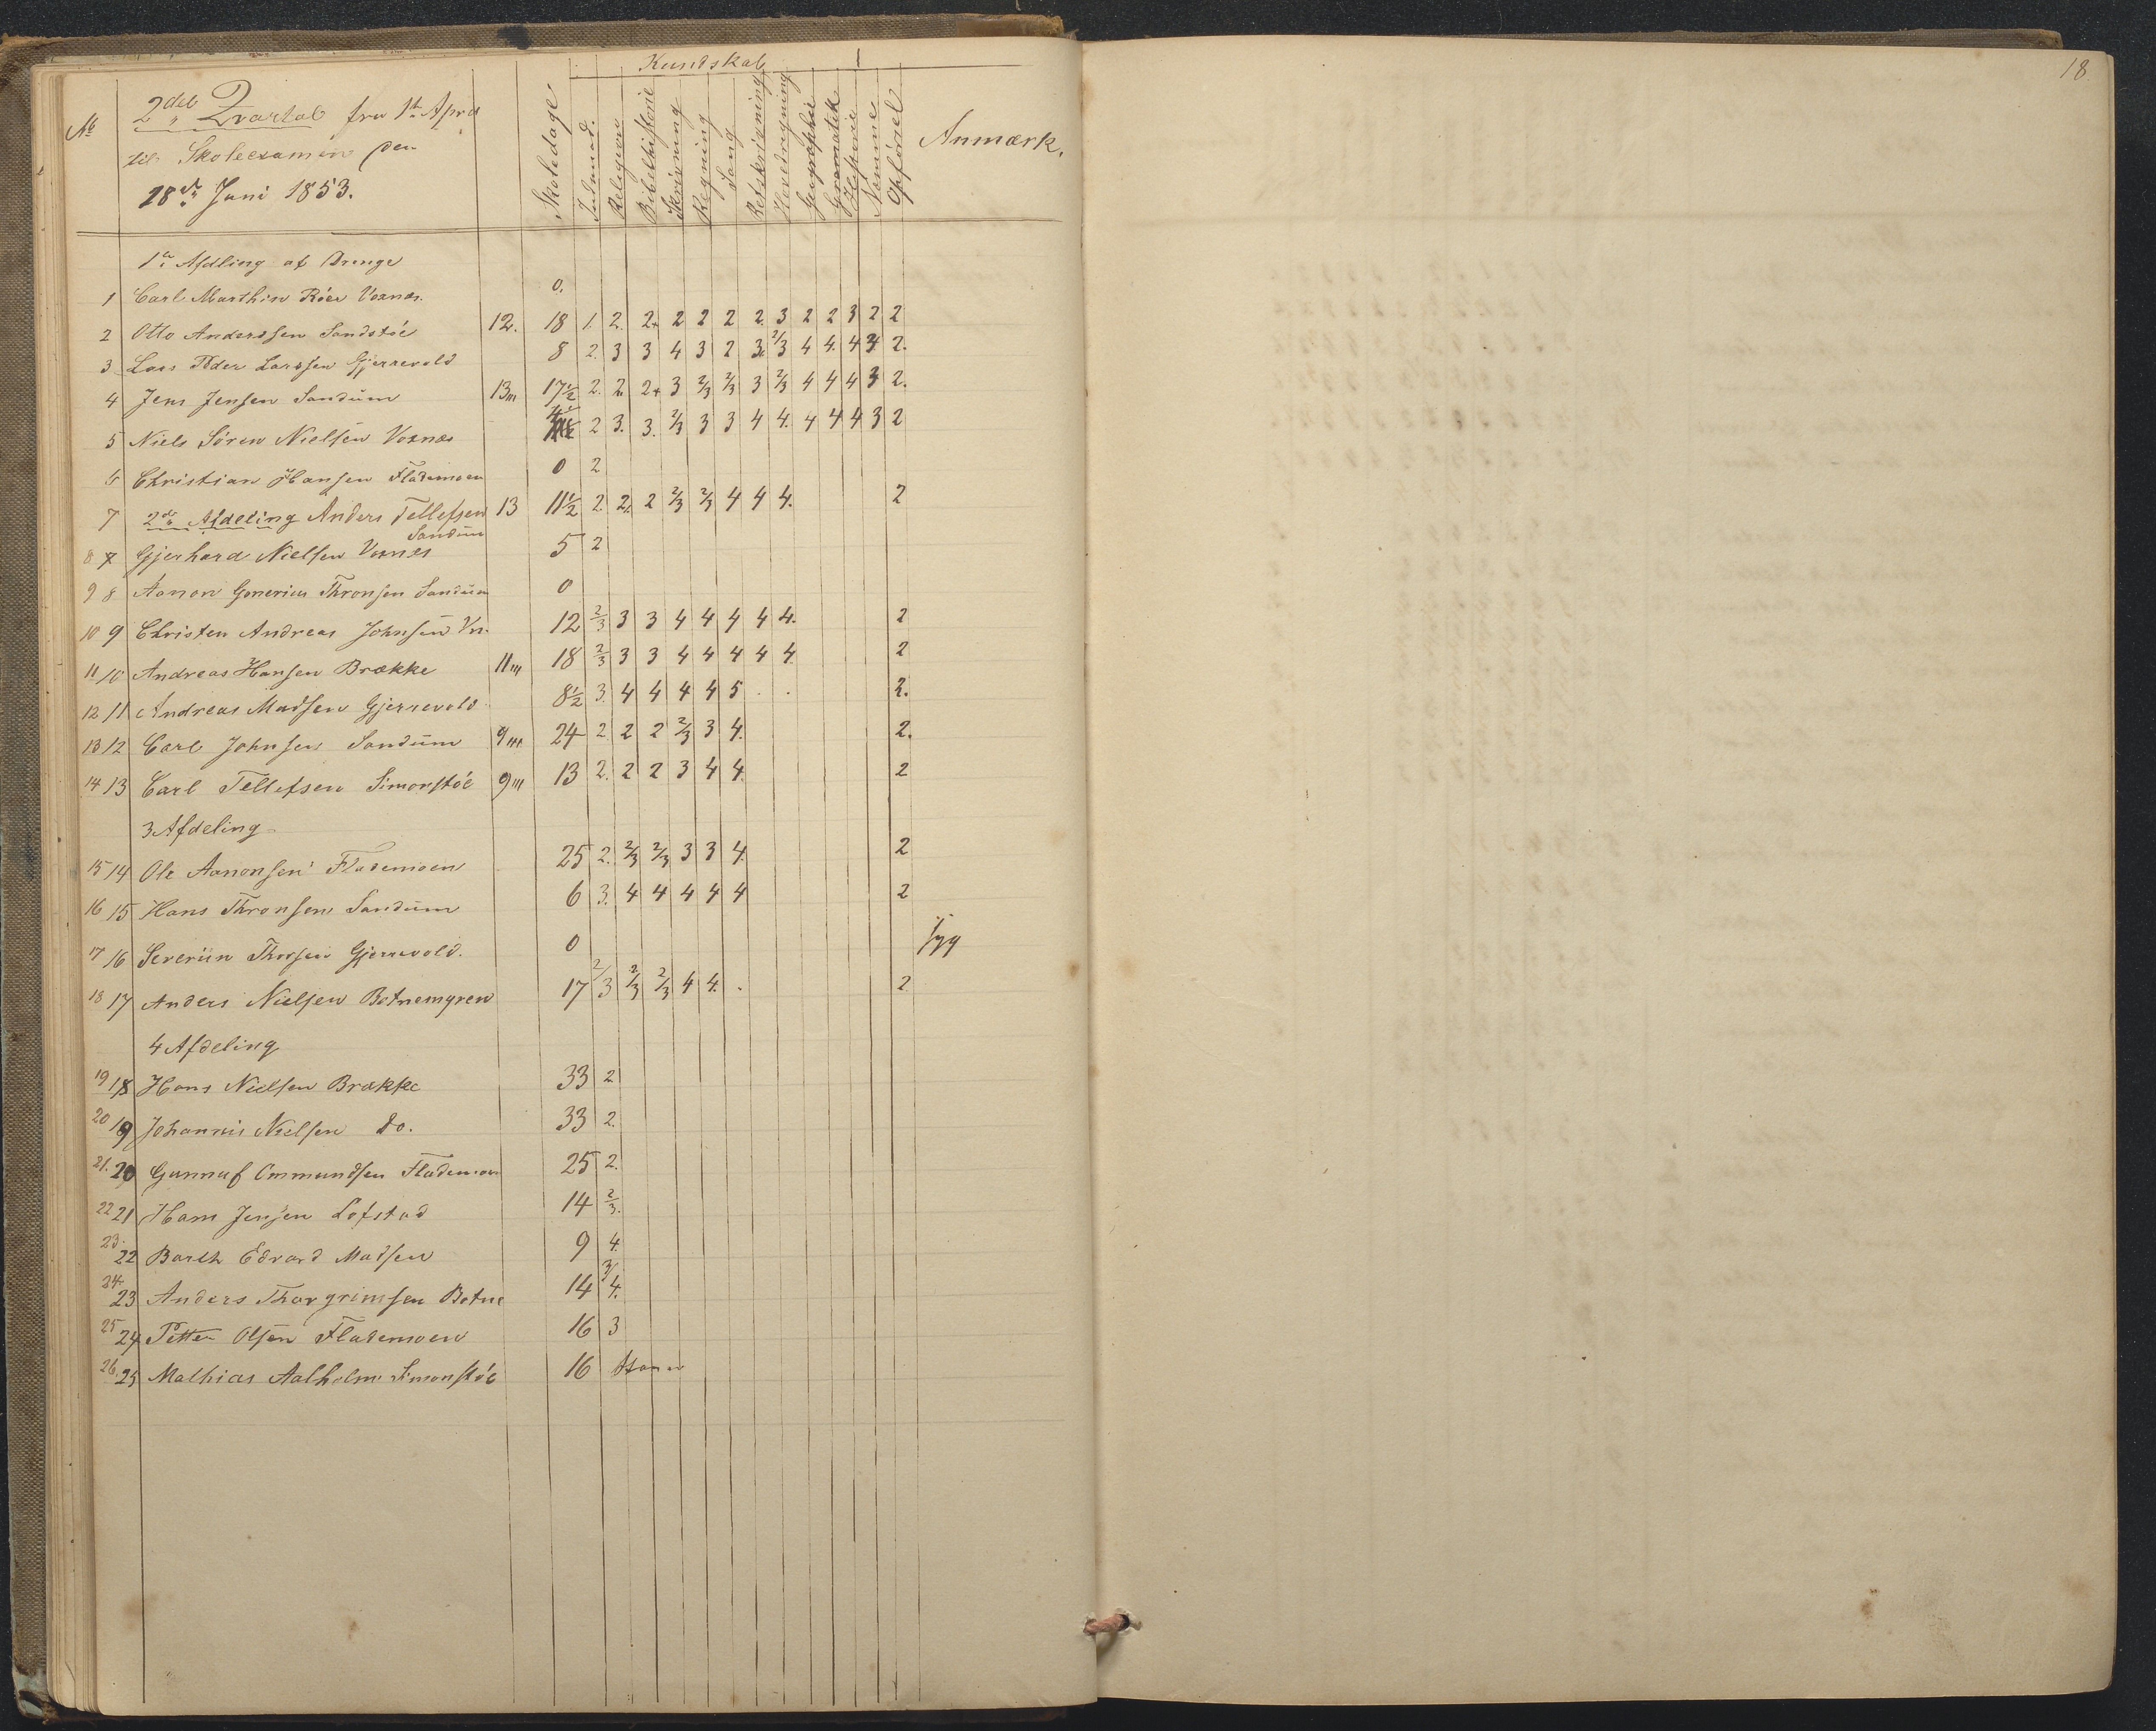 18
Kundskab
No 2det Qvartal fra 1ste April
til Skoleexamen den
28de Juni 1853.
Skoledage Indenad. Religion Bibelhistorie Skrivning Regning Sang Retskrivning Hovedregning Geographie Gramatik Historie Nemme Opførsel Anmærk.
1ste Afdling af Drenge
1 Carl Marthin Röer Voxnæs. 0.
2 Otto Anderssen Sandstöe 12. 18 1. 2. 2+ 2 2 2 2. 3 2 2 3 2 2
3 Lars Peder Larssen Gjerrevold 8 2. 3 3 4 3 2 3. 2/3 4 4. 4 3. 2.
4 Jens Jensen Sandum 13 17½ 2. 2. 2+ 3 2/3 2/3 3 2/3 4 4 4 3 2.
5 Niels Sören Nielsen Voxnæs 2 3. 3. 2/3 3 3 4 4. 4 4 4 3 2
6 Christian Hansen Flademoen 0 2
7 2den Afdeling Anders Tellefsen 13 11½ 2. 2. 2 2/3 2/3 4 4 4. 2
Sandum
8 7 Gjerhard Nielsen Voxnes 5 2
9 8 Aanon Gonerius Thronsen Sandum 0
10 9 Christen Andreas Johnsen Vn. 12 2/3 3 3 4 4 4 4 4. 2
11 10 Andreas Hansen Brække 11 18 2/3 3 3 4 4 4 4 4. 2
12 11 Andreas Madsen Gjerrevold 8½ 3. 4 4 4 4 5 . . 2.
13 12 Carl Johnsen Sandum 9 24 2. 2 2 2/3 3 4. 2.
14 13 Carl Tellefsen Simonstöe 9 13 2. 2 2 3 4 4. 2
3 Afdeling
15 14 Ole Aanonsen Flademoen 25 2. 2/3 2/3 3 3 4. 2
16 15 Hans Thronsen Sandum 6 3. 4 4 4 4 4 2
17 16 Severiin Thorsen Gjerrevold. 0 syg
18 17 Anders Nielsen Botnemyren 17 2/3 2/3 2/3 4 4. . 2
4 Afdeling
19 18 Hans Nielsen Brække 33 2
20 19 Johannis Nielsen do. 33 2.
21. 20 Gunnuf Ommundsen Flademoen 25 2.
22 21 Hans Jensen Löfstad 14 2/3.
23. 22 Barth Edvard Madsen 9 4.
24 23 Anders Thorgrimsen Botne 14 3/4.
25 24 Petter Olsen Flademoen 16 3
26. 25 Mathias Aalholm Simonstöe 16